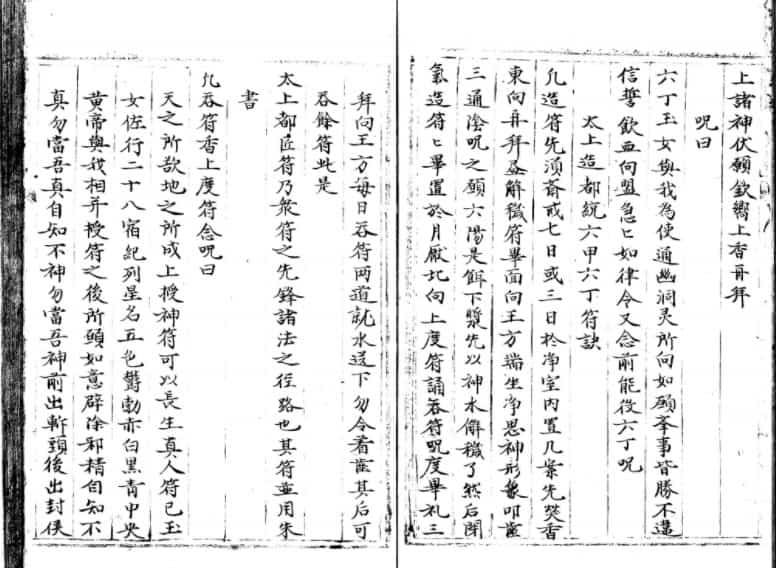 上諸神伏願欽嚮上香再拜
呪曰
六丁玉女與我為使通幽洞灵所向如願奉事皆勝不違
信誓歃血同盟急〻如律令又念前能役六丁呪
太上造都統六甲六丁符訣
凢造符先須齋戒七日或三日於净室内置几案先焚香
東向再拜盃解穢符畢面向王方端坐净思神形象叩齒
三通陰呪之願六陽是餌下漿先以神水解穢了然后閉
氣造符〻畢置於月厭北向上度符誦吞符呪度畢礼三
拜向王方每日吞符两道就水送下勿令着齒其后可
吞餘符此是
太上都匠符乃衆符之先鋒諸法之徑路也其符並用朱
書
凢吞符香上度符念呪曰
天之所欲地之所成上授神符可以長生真人符已玉
女佐行二十八宿紀列星名五色欝勃赤白黒青中央
黄帝與我相并授符之後所願如意辟除邪精自知不
真勿當吾真自知不神勿當吾神前出斬頭後出封侯